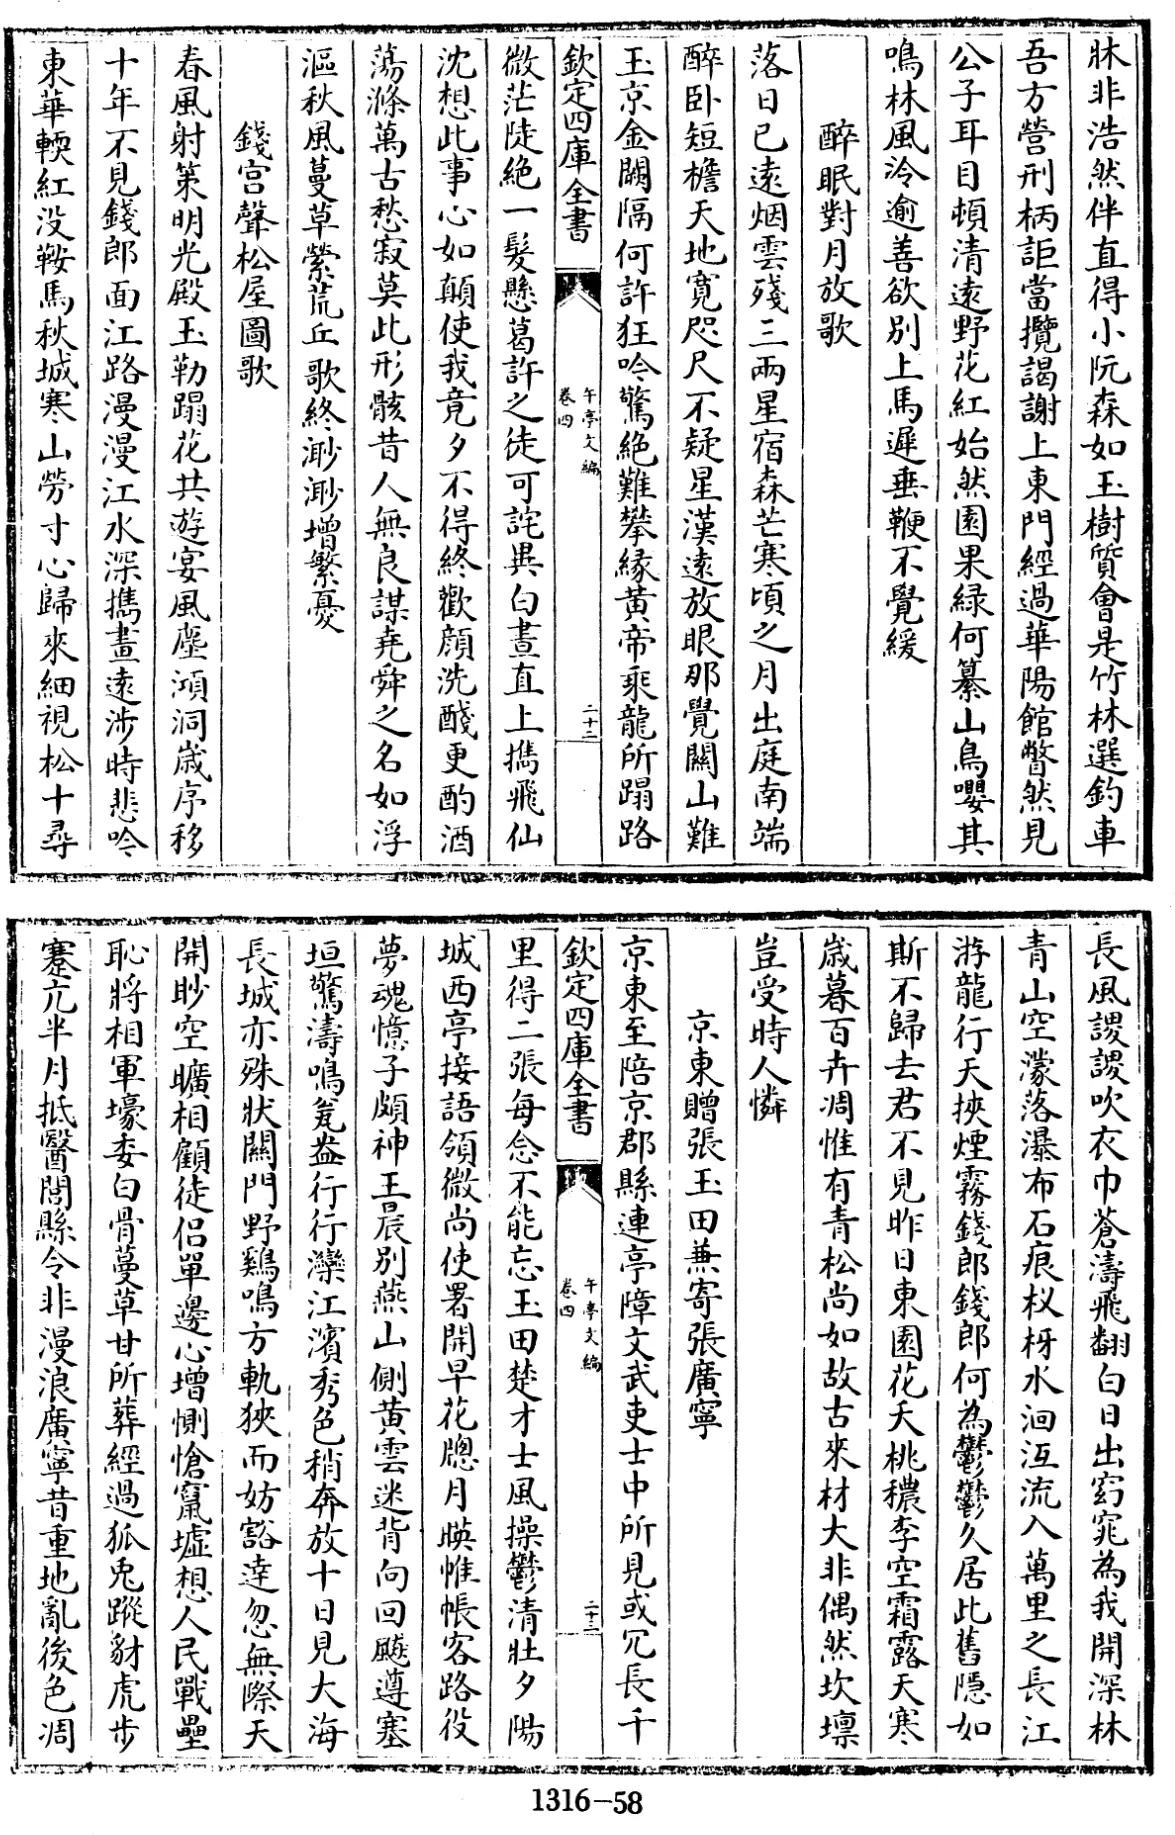 牀非浩然伴直得小阮森如玉樹質會是竹林選釣車
吾方營刑柄詎當攬謁謝上東門經過華陽館瞥然見
公子耳目頓清遠野花紅始然園果緑何纂山鳥嚶其
鳴林風泠逾善欲别上馬遲垂鞭不覺緩
醉眠對月放歌
落日已遠烟雲殘三兩星宿森芒寒頃之月出庭南端
醉卧短檐天地寛咫尺不疑星漢遠放眼那覺關山難
玉京金闕隔何許狂吟驚絶難攀縁黄帝乘龍所蹋路
欽定四庫全書
午亭文編
卷四
二十二
微茫陡絶一髮懸葛許之徒可詫異白晝直上擕飛仙
沈想此事心如顛使我竟夕不得終歡顔洗醆更酌酒
蕩滌萬古愁寂莫此形骸昔人無良謀堯舜之名如浮
漚秋風蔓草縈荒丘歌終渺渺增繁憂
錢宫聲松屋圖歌
春風射策明光殿玉勒蹋花共遊宴風塵澒洞歲序移
十年不見錢郎面江路漫漫江水深擕畫遠涉時悲吟
東華輭紅没鞍馬秋城寒山勞寸心歸來細視松十尋
長風謖謖吹衣巾蒼濤飛翻白日出窈窕為我開深林
青山空濛落瀑布石痕杈枒水洄沍流入萬里之長江
游龍行天挾煙霧錢郎錢郎何為鬱鬱久居此舊隱如
斯不歸去君不見昨日東園花夭桃穠李空霜露天寒
歲暮百卉凋惟有青松尚如故古來材大非偶然坎壈
豈受時人憐
京東贈張玉田兼寄張廣寧
京東至陪京郡縣連亭障文武吏士中所見或冗長千
欽定四庫全書
午亭文編
卷四
二十三
里得二張每念不能忘玉田楚才士風操鬱清壯夕陽
城西亭接語領微尚使署開早花牕月暎帷帳客路役
夢魂憶子頗神王晨别燕山側黄雲迷背向回飈遵塞
垣驚濤鳴瓮盎行行灤江濱秀色稍奔放十日見大海
長城亦殊狀關門野鷄鳴方軌狹而妨谿逹忽無際天
開眇空曠相顧徒侣單邊心增惻愴竄墟想人民戰壘
恥將相軍壕委白骨蔓草甘所葬經過狐兎蹤豺虎步
蹇亢半月抵醫閭縣令非漫浪廣寧昔重地亂後色凋
1316-58